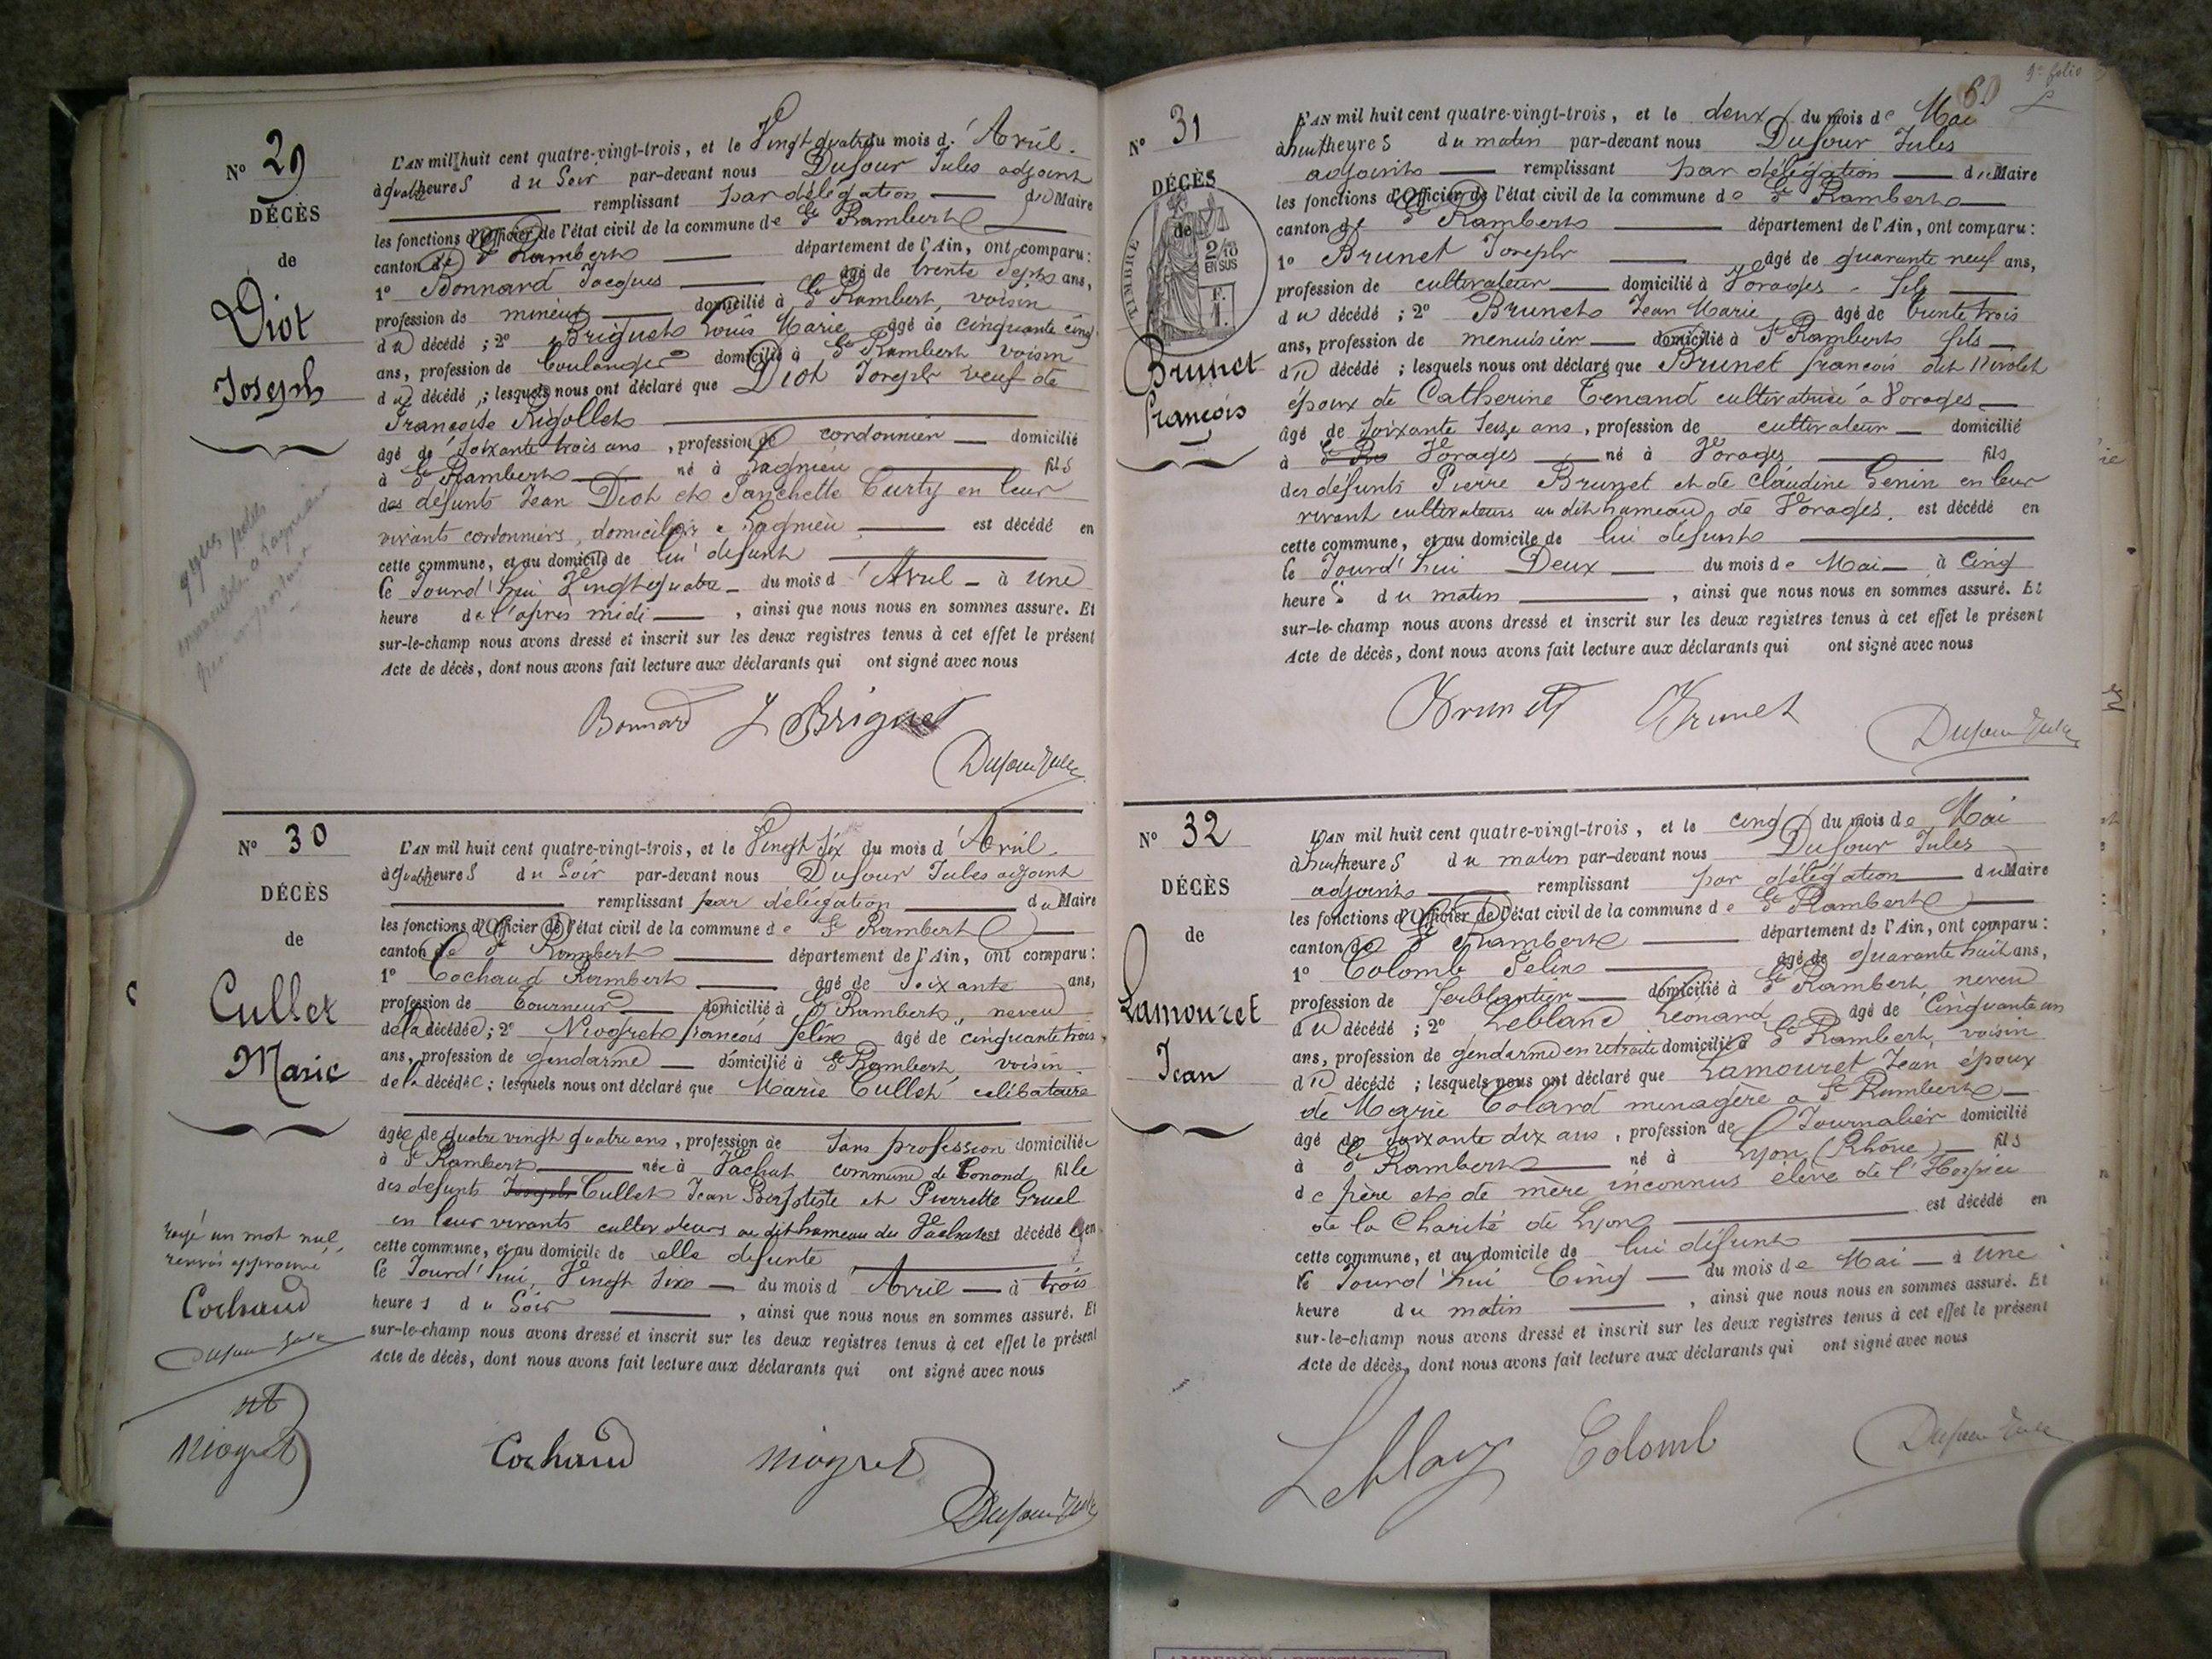 N° 29
DÉCÈS
de
Diot
Joseph
L'AN mil huit cent quatre-vingt-trois, et le Vingt quatre du mois d'Avril.
à quatre heures du Soir par-devant nous Dufour Jules adjoint
remplissant par délégation du Maire
les fonctions d'Officier de l'état civil de la commune de St Rambert
canton de St Rambert département de l'Ain, ont comparu:
1° Bonnard Jacques âgé de trente sept ans,
profession de mineur domicilié à St Rambert, voisin
du décédé ; 2° Briguet Louis Marie âgé de cinquante cinq
ans, profession de boulanger domicilié à St Rambert voisin
du décédé ; lesquels nous ont déclaré que Diot Joseph veuf de
Françoise Rigollet
âgé de soixante trois ans, profession de cordonnier domicilié
à St Rambert né à Lagnieu fils
des défunts Jean Diot et Fanchette Curty en leur
vivants cordonniers, domiciliés à Lagnieu est décédé en
cette commune, et au domicile de lui défunt
le Jourd'hui Vingt quatre du mois d'Avril à une
heure de l'après midi, ainsi que nous nous en sommes assuré. Et
sur-le-champ nous avons dressé et inscrit sur les deux registres tenus à cet effet le présent
Acte de décès, dont nous avons fait lecture aux déclarants qui ont signé avec nous
Bonnard L Briguet
Dufour Jules
N° 30
DÉCÈS
de
Cullet
Marie
L'AN mil huit cent quatre-vingt-trois, et le Vingt Six du mois d'Avril.
à quatre heures du Soir par-devant nous Dufour Jules adjoint
remplissant par délégation du Maire
les fonctions d'Officier de l'état civil de la commune de St Rambert
canton de St Rambert département de l'Ain, ont comparu:
1° Cochaud Rambert âgé de Soixante ans,
profession de Tourneur domicilié à St Rambert, neveu
de la décédée ; 2° Niogret françois félix âgé de cinquante trois
ans, profession de gendarme domicilié à St Rambert, voisin
de la décédée ; lesquels nous ont déclaré que Marie Cullet célibataire
âgée de quatre vingt quatre ans, profession de Sans profession domiciliée
à St Rambert née à Vachat commune de Conand fille
des défunts Joseph Cullet Jean Baptiste et Pierrette Gruel
en leur vivants cultivateurs au dit hameau du Vachat est décédée en
cette commune, et au domicile de elle defunte
le Jourd'hui, Vingt Six du mois d'Avril à trois
heures du Soir, ainsi que nous nous en sommes assuré. Et
sur-le-champ nous avons dressé et inscrit sur les deux registres tenus à cet effet le présent
Acte de décès, dont nous avons fait lecture aux déclarants qui ont signé avec nous
rayé un mot nul
renvoi approuvé
Cochaud
Dufour Jules
Niogret
Cochaud Niogret
Dufour Jules
9e folio
60
N° 31
DÉCÈS
de
TIMBRE
2/10
EN SUS
F.
1.
Brunet
françois
L'AN mil huit cent quatre-vingt-trois, et le deux du mois de Mai
à neuf heures du matin par-devant nous Dufour Jules
adjoint remplissant par délégation du Maire
les fonctions d'Officier de l'état civil de la commune de St Rambert
canton de St Rambert département de l'Ain, ont comparu:
1° Brunet Joseph âgé de quarante neuf ans,
profession de cultivateur domicilié à Vorages fils
du décédé ; 2° Brunet Jean Marie âgé de trente trois
ans, profession de menuisier domicilié à St Rambert fils
du décédé ; lesquels nous ont déclaré que Brunet françois dit Nivolet
époux de Catherine Tenand cultivatrice à Vorages
âgé de soixante seize ans, profession de cultivateur domicilié
à Vorages né à Vorages fils
des défunts Pierre Brunet et de Claudine Genin en leur
vivant cultivateurs au dit hameau de Vorages. est décédé en
cette commune, et au domicile de lui défunt
le Jourd'hui Deux du mois de Mai à Cinq
heures du matin, ainsi que nous nous en sommes assuré. Et
sur-le-champ nous avons dressé et inscrit sur les deux registres tenus à cet effet le présent
Acte de décès, dont nous avons fait lecture aux déclarants qui ont signé avec nous
Brunet Brunet
Dufour Jules
N° 32
DÉCÈS
de
Lamouret
Jean
L'AN mil huit cent quatre-vingt-trois, et le cinq du mois de Mai
à neuf heures du matin par-devant nous Dufour Jules
adjoint remplissant par délégation du Maire
les fonctions d'Officier de l'état civil de la commune de St Rambert
canton de St Rambert département de l'Ain, ont comparu:
1° Colomb Félix âgé de quarante huit ans,
profession de ferblantier domicilié à St Rambert neveu
du décédé ; 2° Leblanc Léonard âgé de Cinquante un
ans, profession de gendarme en retraite domicilié à St Rambert, voisin
du décédé ; lesquels nous ont déclaré que Lamouret Jean époux
de Marie Colard menagère à St Rambert
âgé de soixante dix ans, profession de Journalier domicilié
à St Rambert né à Lyon (Rhône) fils
de père et de mère inconnus élève de l'Hospice
de la Charité de Lyon est décédé en
cette commune, et au domicile de lui défunt
le Jourd'hui Cinq du mois de Mai à une
heure du matin, ainsi que nous nous en sommes assuré. Et
sur-le-champ nous avons dressé et inscrit sur les deux registres tenus à cet effet le présent
Acte de décès, dont nous avons fait lecture aux déclarants qui ont signé avec nous
Colomb
Dufour Jules